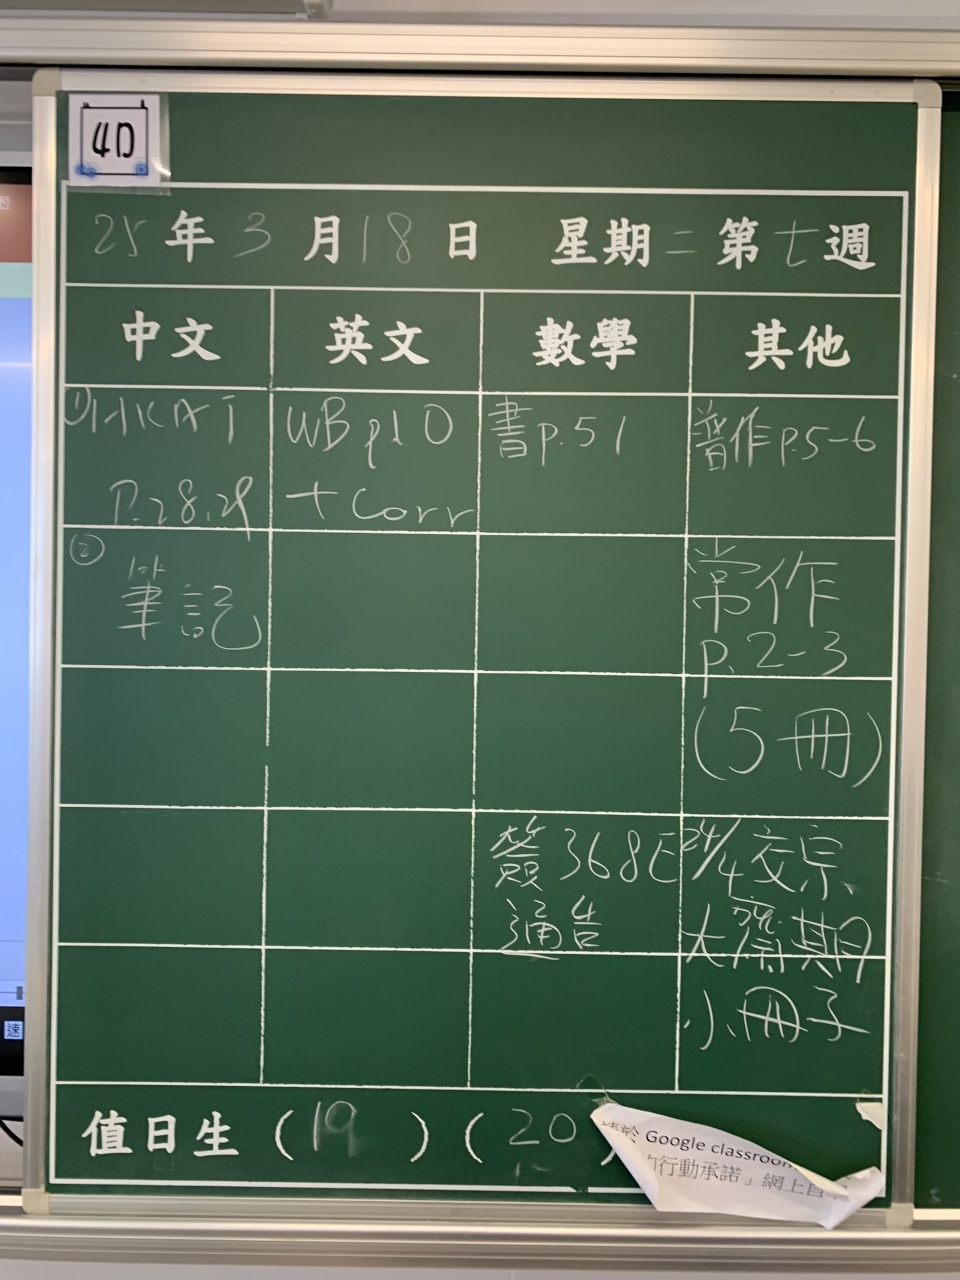 4D
25年3月18日 星期二第七週
中文 英文 數學 其他
①HKAT
P.28,29
WB p10
+ Corr
書p.51
普作p.5-6
②
筆記
常作
p.2-3
(5冊)
簽368E
通告
24/4交宗
大齋期
小冊子
值日生(19)(20)
請於 Google classroom
的行動承諾」網上自
速